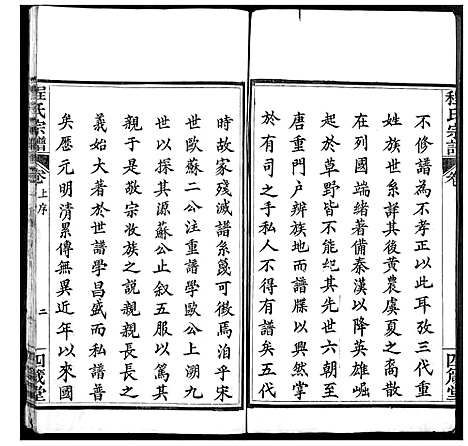 程氏宗譜
卷
四箴堂
不修譜為不孝正以此耳孜三代重
姓族世系詳其後黄農虞夏之裔散
在列國端緒著備秦漢以降英雄崛
起於草野皆不能紀其先世六朝至
唐重門户辨族地而譜牒以興然掌
於有司之手私人不得有譜矣五代
時故家殘滅譜系幾可徵焉洎乎宋
世歐蘇二公注重譜學歐公上溯九
世以探其源蘇公止叙五服以篤其
親于是敬宗收族之說親親長長之
義始大著於世譜學昌盛而私譜普
矣歷元明清累傳無異近年以來國
程氏宗譜
卷上序
二
四箴堂